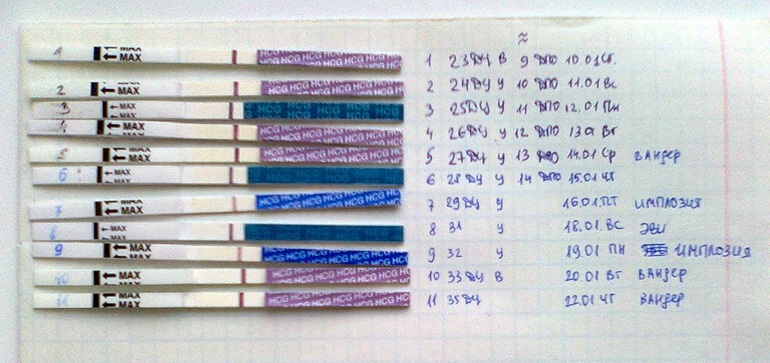 ≈
1 MAX MAX HCG HCG HCG HCG 1 23ДЦ В 9 ДПО 10.01 Сб.
2 MAX MAX HCG HCG HCG HCG 2 24ДЦ У 10 ДПО 11.01 Вс
3 MAX HCG HCG HCG HCG 3 25ДЦ У 11 ДПО 12.01 ПН
MAX MAX HCG HCG HCG HCG 4 26ДЦ У 12 ДПО 13.01 ВТ
5 MAX MAX HCG HCG HCG HCG 5 27ДЦ У 13 ДПО 14.01 СР ВАНДЕР
6 MAX 6 28ДЦ У 14 ДПО 15.01 ЧТ
7 MAX MAX HCG HCG HCG HCG 7 29ДЦ У 16.01.ПТ ИМПЛОЗИЯ
MAX 8 31 У 18.01.ВС ЭВИ
9 MAX MAX HCG HCG HCG HCG 9 32 У 19.01 ПН ИМПЛОЗИЯ
10 MAX HCG HCG HCG HCG 10 33ДЦ В 20.01 ВТ ВАНДЕР
11 MAX MAX HCG HCG HCG HCG 11 35ДЦ 22.01 ЧТ ВАНДЕР